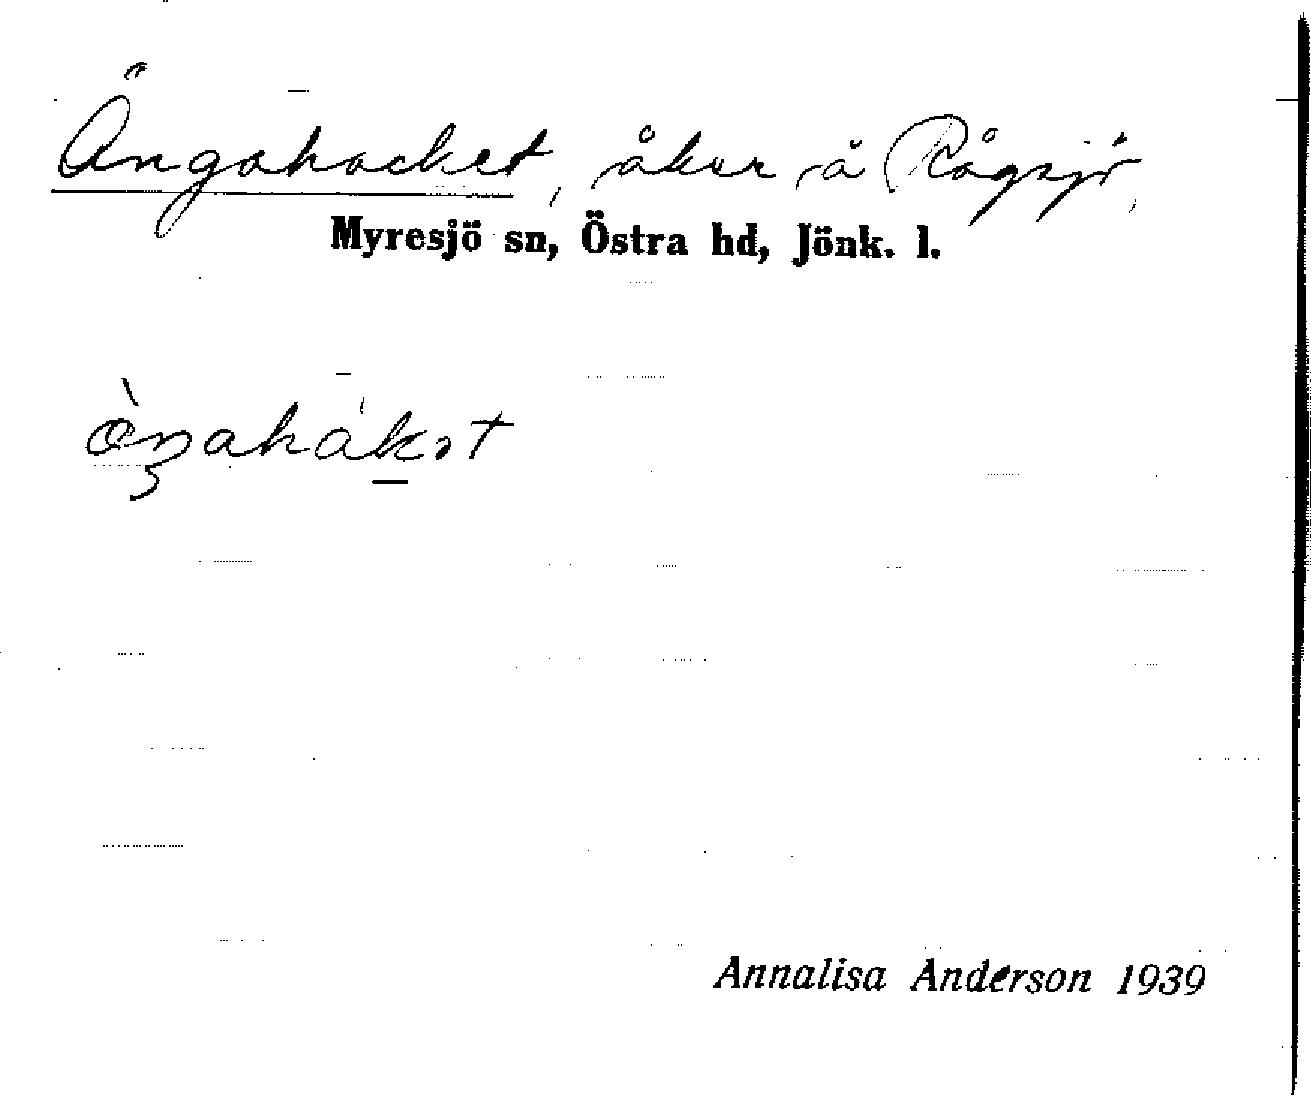 Ängahacket, åker å Rågsjö,
Myresjö sn, Östra hd, Jönk. l.
Annalisa Anderson 1939